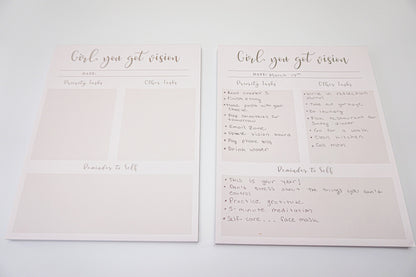 Girl, you got vision
DATE:
Priority Tasks
Other Tasks
Reminders to Self
Girl, you got vision
DATE: March 19th
Priority Tasks
• Read chapter 3
• Finish essay
• tomorrow
• Email Jane
• vision board
• Pay phone bill
• Drink water
Other Tasks
• Write in reflection journal
• Take out garbage
• Do laundry
• Pick restaurant for Sunday dinner
• Go for a walk
• Clean kitchen
• Call mom
Reminders to Self
• This is your year!
• Don't stress about the things you can't
control
• Practice gratitude
• 5-minute meditation
• Self-care... face mask